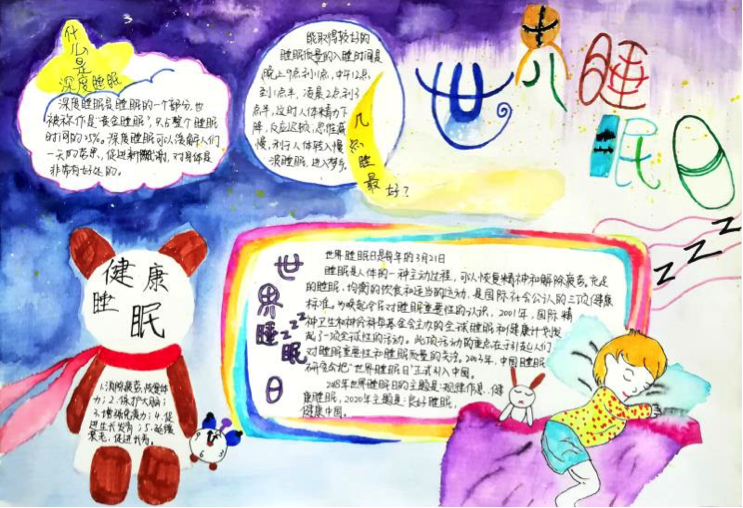 什么是
深度睡眠
深度睡眠是睡眠的一个部分,也
被称作是“黄金睡眠”,只占整个睡眠
时间的25%。深度睡眠可以缓解人们
一天的劳累,促进新陈代谢,对身体是
非常有好处的。
能取得较好的
睡眠质量的入睡时间是
晚上9点到11点,中午12点
到1点半,凌晨2点到3
点半,这时人体精力下
降,反应迟较,思维减
慢,利于人体转入慢
波睡眠,进入梦乡。
几点睡最好?
世界睡眠日
健康
睡眠
1.消除疲劳,恢复体
力;2.保护大脑;
3.增强免疫力;4.促
进生长发育;5.延缓
衰老,促进长寿。
世界睡眠日
zzz
世界睡眠日是每年的3月21日
睡眠是人体的一种主动过程,可以恢复精神和解除疲劳。充足
的睡眠、均衡的饮食和适当的运动,是国际社会公认的三项健康
标准。为唤起全民对睡眠重要性的认识,2001年,国际精
神卫生和神经科学基金会主办的全球睡眠和健康计划发
起了一项全球性的活动。此项活动的重点在于引起人们
对睡眠重要性和睡眠质量的关注。2003年,中国睡眠
研究会把“世界睡眠日”正式引入中国。
2018年世界睡眠日的主题是:规律作息,健
康睡眠,2020年主题是:良好睡眠,
健康中国。
ZZZ
9
6
3